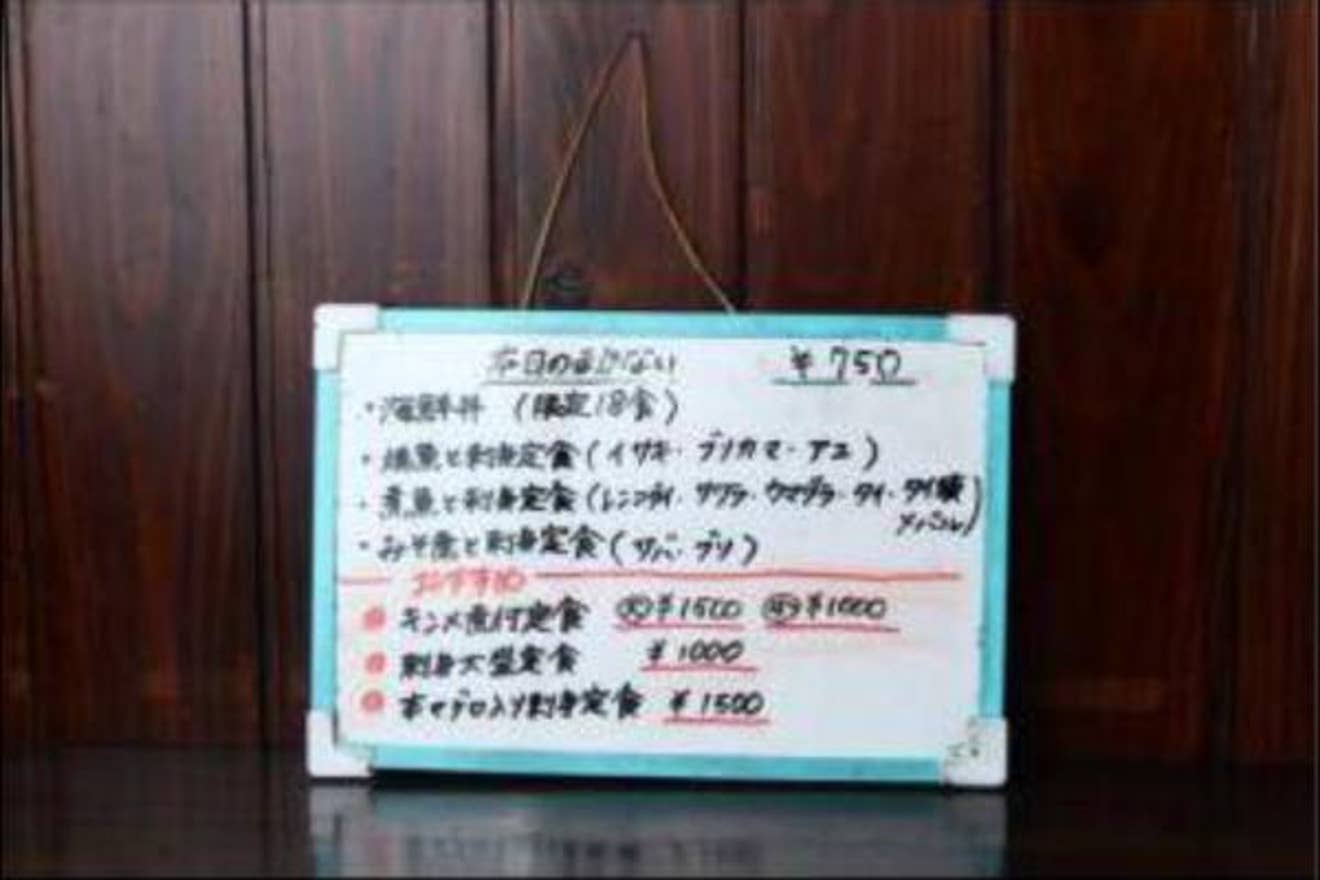 本日のまかない ¥750
・海鮮丼 (限定18食)
・焼魚と刺身定食(イサキ・ブリカマ・アユ)
・煮魚と刺身定食(レンコダイ・サワラ・ウマヅラ・タイ・タイ頭
メバル)
・みそ煮と刺身定食(サバ・ブリ)
おすすめ
キンメ煮付定食 ¥1500 ¥1000
刺身大盛定食 ¥1000
本マグロ入り刺身定食 ¥1500